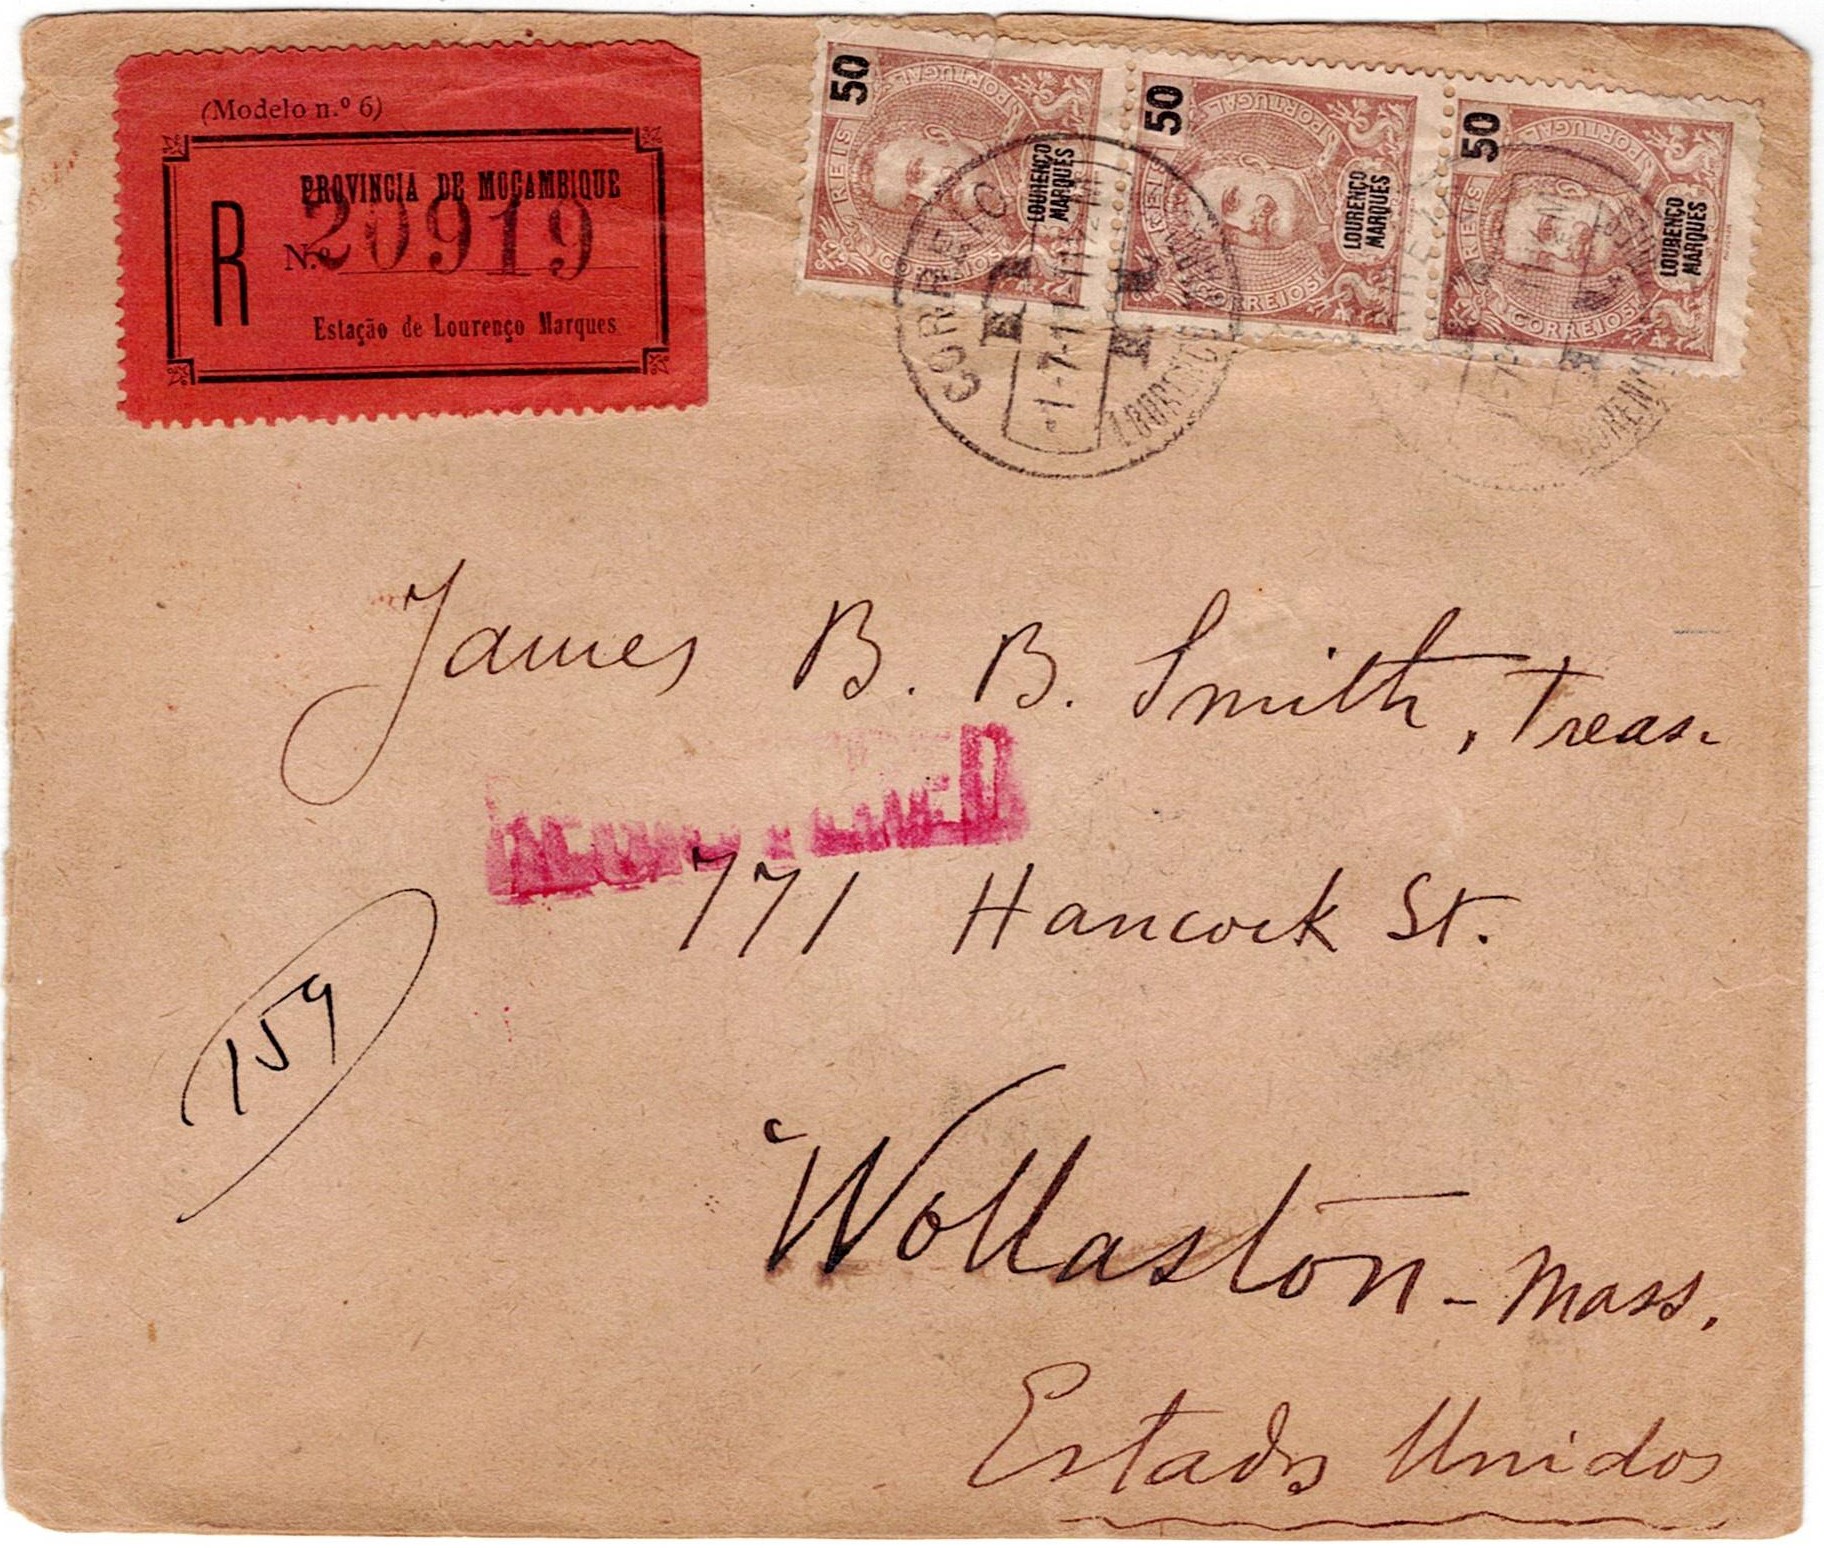 (Modelo n.º 6)
PROVINCIA DE MOÇAMBIQUE
R
N.º 20919
Estação de Lourenço Marques
50
PORTUGAL
REIS
LOURENÇO
MARQUES
CORREIOS
50
PORTUGAL
REIS
LOURENÇO
MARQUES
CORREIOS
50
PORTUGAL
REIS
LOURENÇO
MARQUES
CORREIOS
CORREIO
1-7-11
LOURENÇO
James B. B. Smith, Treas.
771 Hancock St.
159
Wollaston - Mass.
Estados Unidos